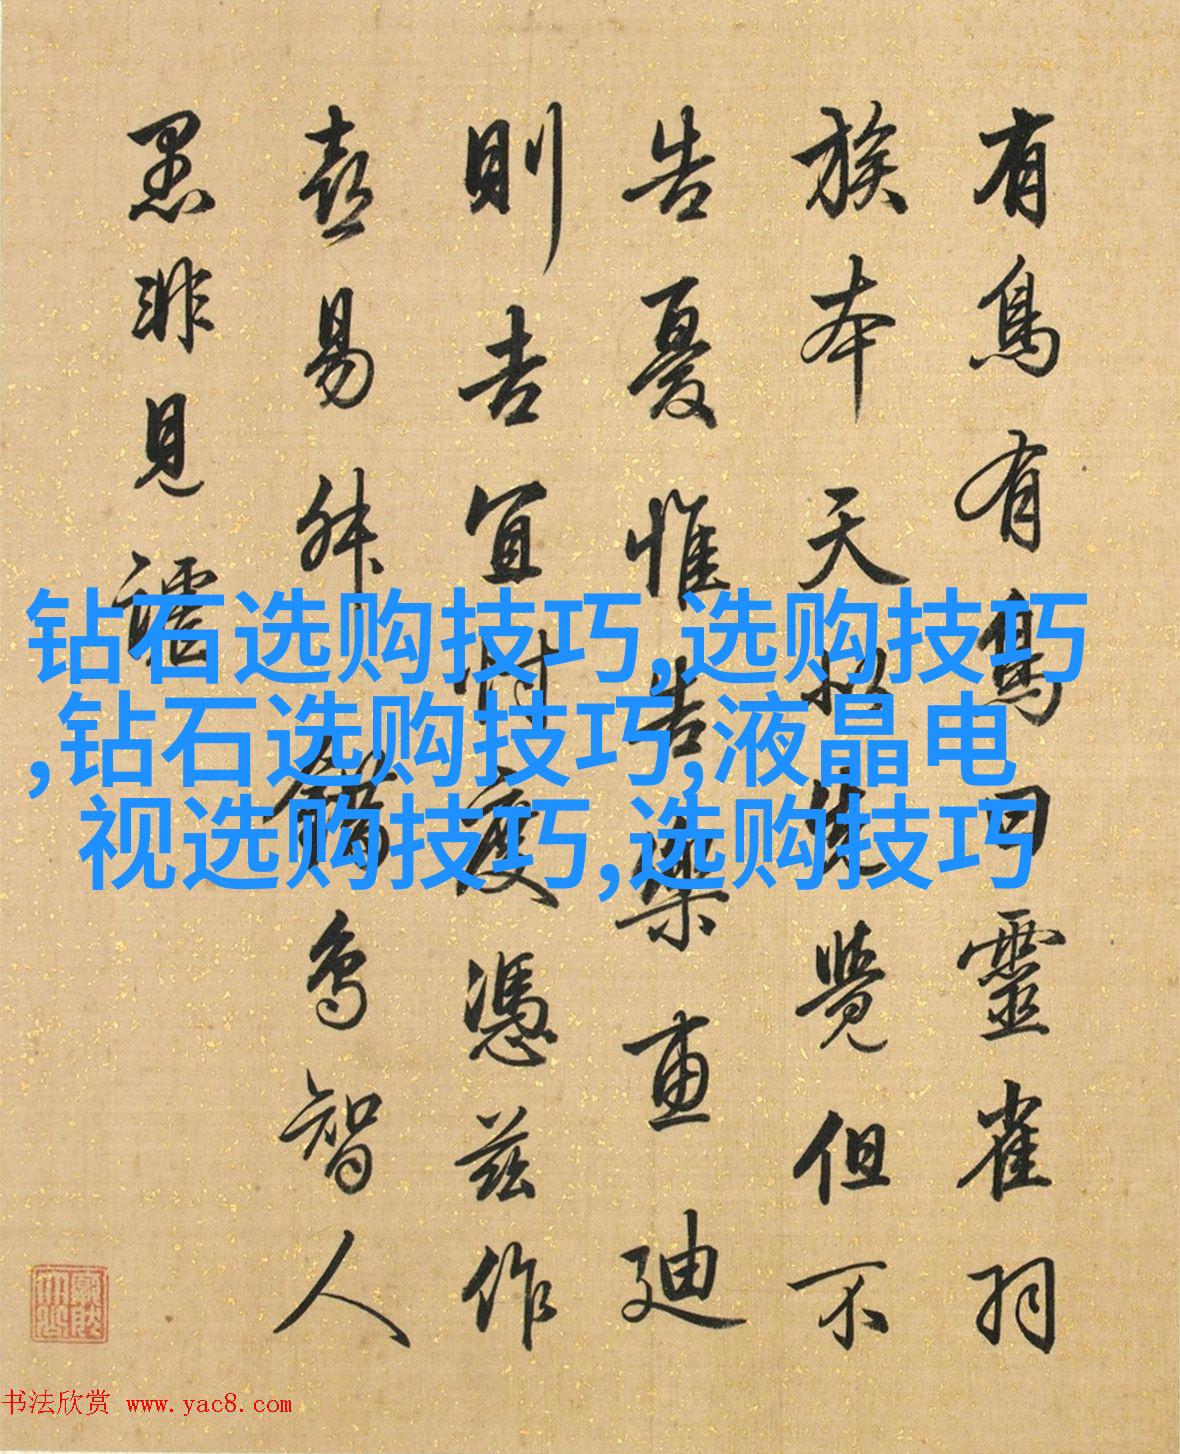 有鳥有鳥曰靈雀羽
族本天先覺但不
告憂惟告樂惠迪
則吉宜忖度憑茲作
喜易舛錯鳥智人
愚非見謔
钻石选购技巧,选购技巧
,钻石选购技巧,液晶电
视选购技巧,选购技巧
书法欣赏 www.yac8.com